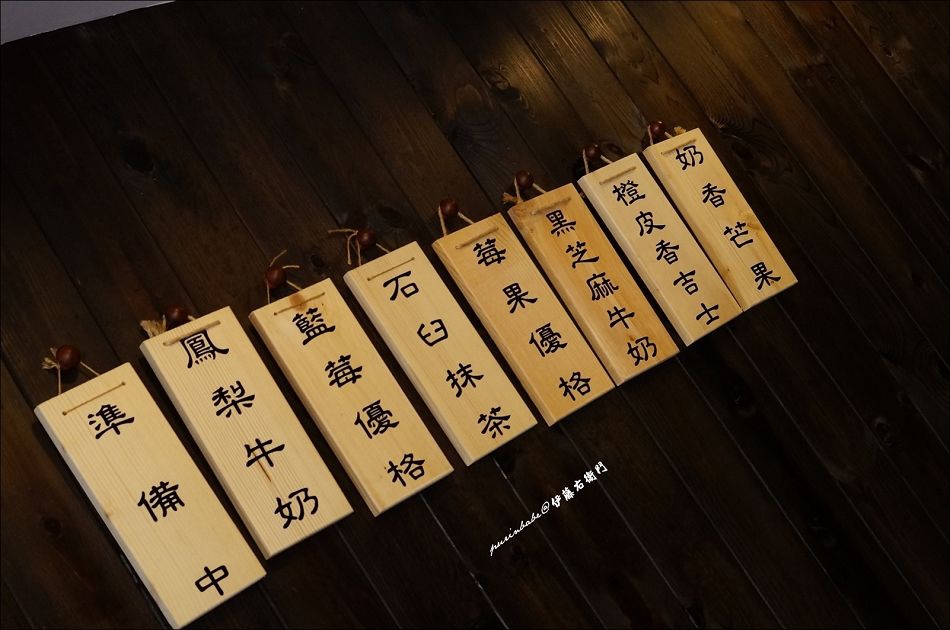 準備中
鳳梨牛奶
藍莓優格
石臼抹茶
莓果優格
黑芝麻牛奶
橙皮香吉士
奶香芒果
purinbabe@伊藤右衛門